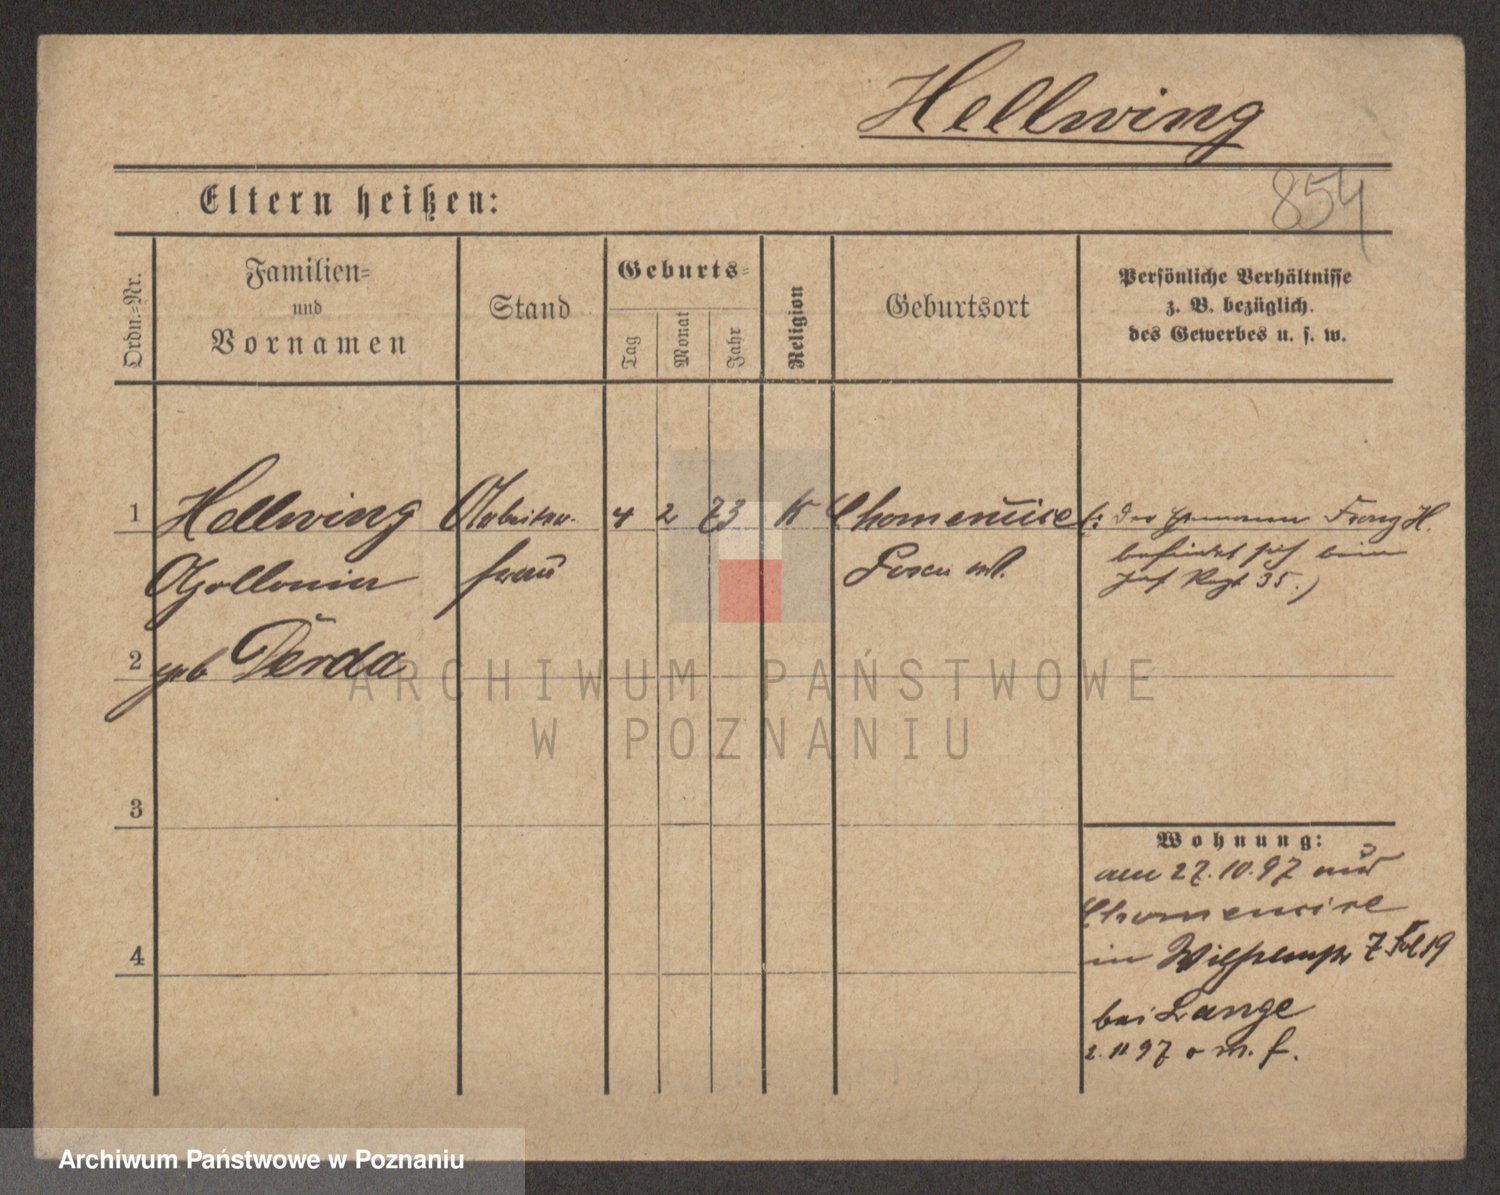 Hellwing
854
Eltern heißen:
Ordn.=Nr.
Familien=
und
Vornamen
Stand
Geburts=
Tag
Monat
Jahr
Religion
Geburtsort
Persönliche Verhältnisse
z. B. bezüglich
des Gewerbes u. s. w.
1 Hellwing Arbeiter- 4 2 73 K Chomencice (: Der Ehemann Franz H.
Apollonia frau Posen befindet sich beim
geb Derda Rgt 35.)
2
3
4
Wohnung:
am 27.10.97 aus
Chomencice
in Wilhelmstr 7 19
bei Lange
2. 11 97 v m. f.
ARCHIWUM PAŃSTWOWE
W POZNANIU
Archiwum Państwowe w Poznaniu